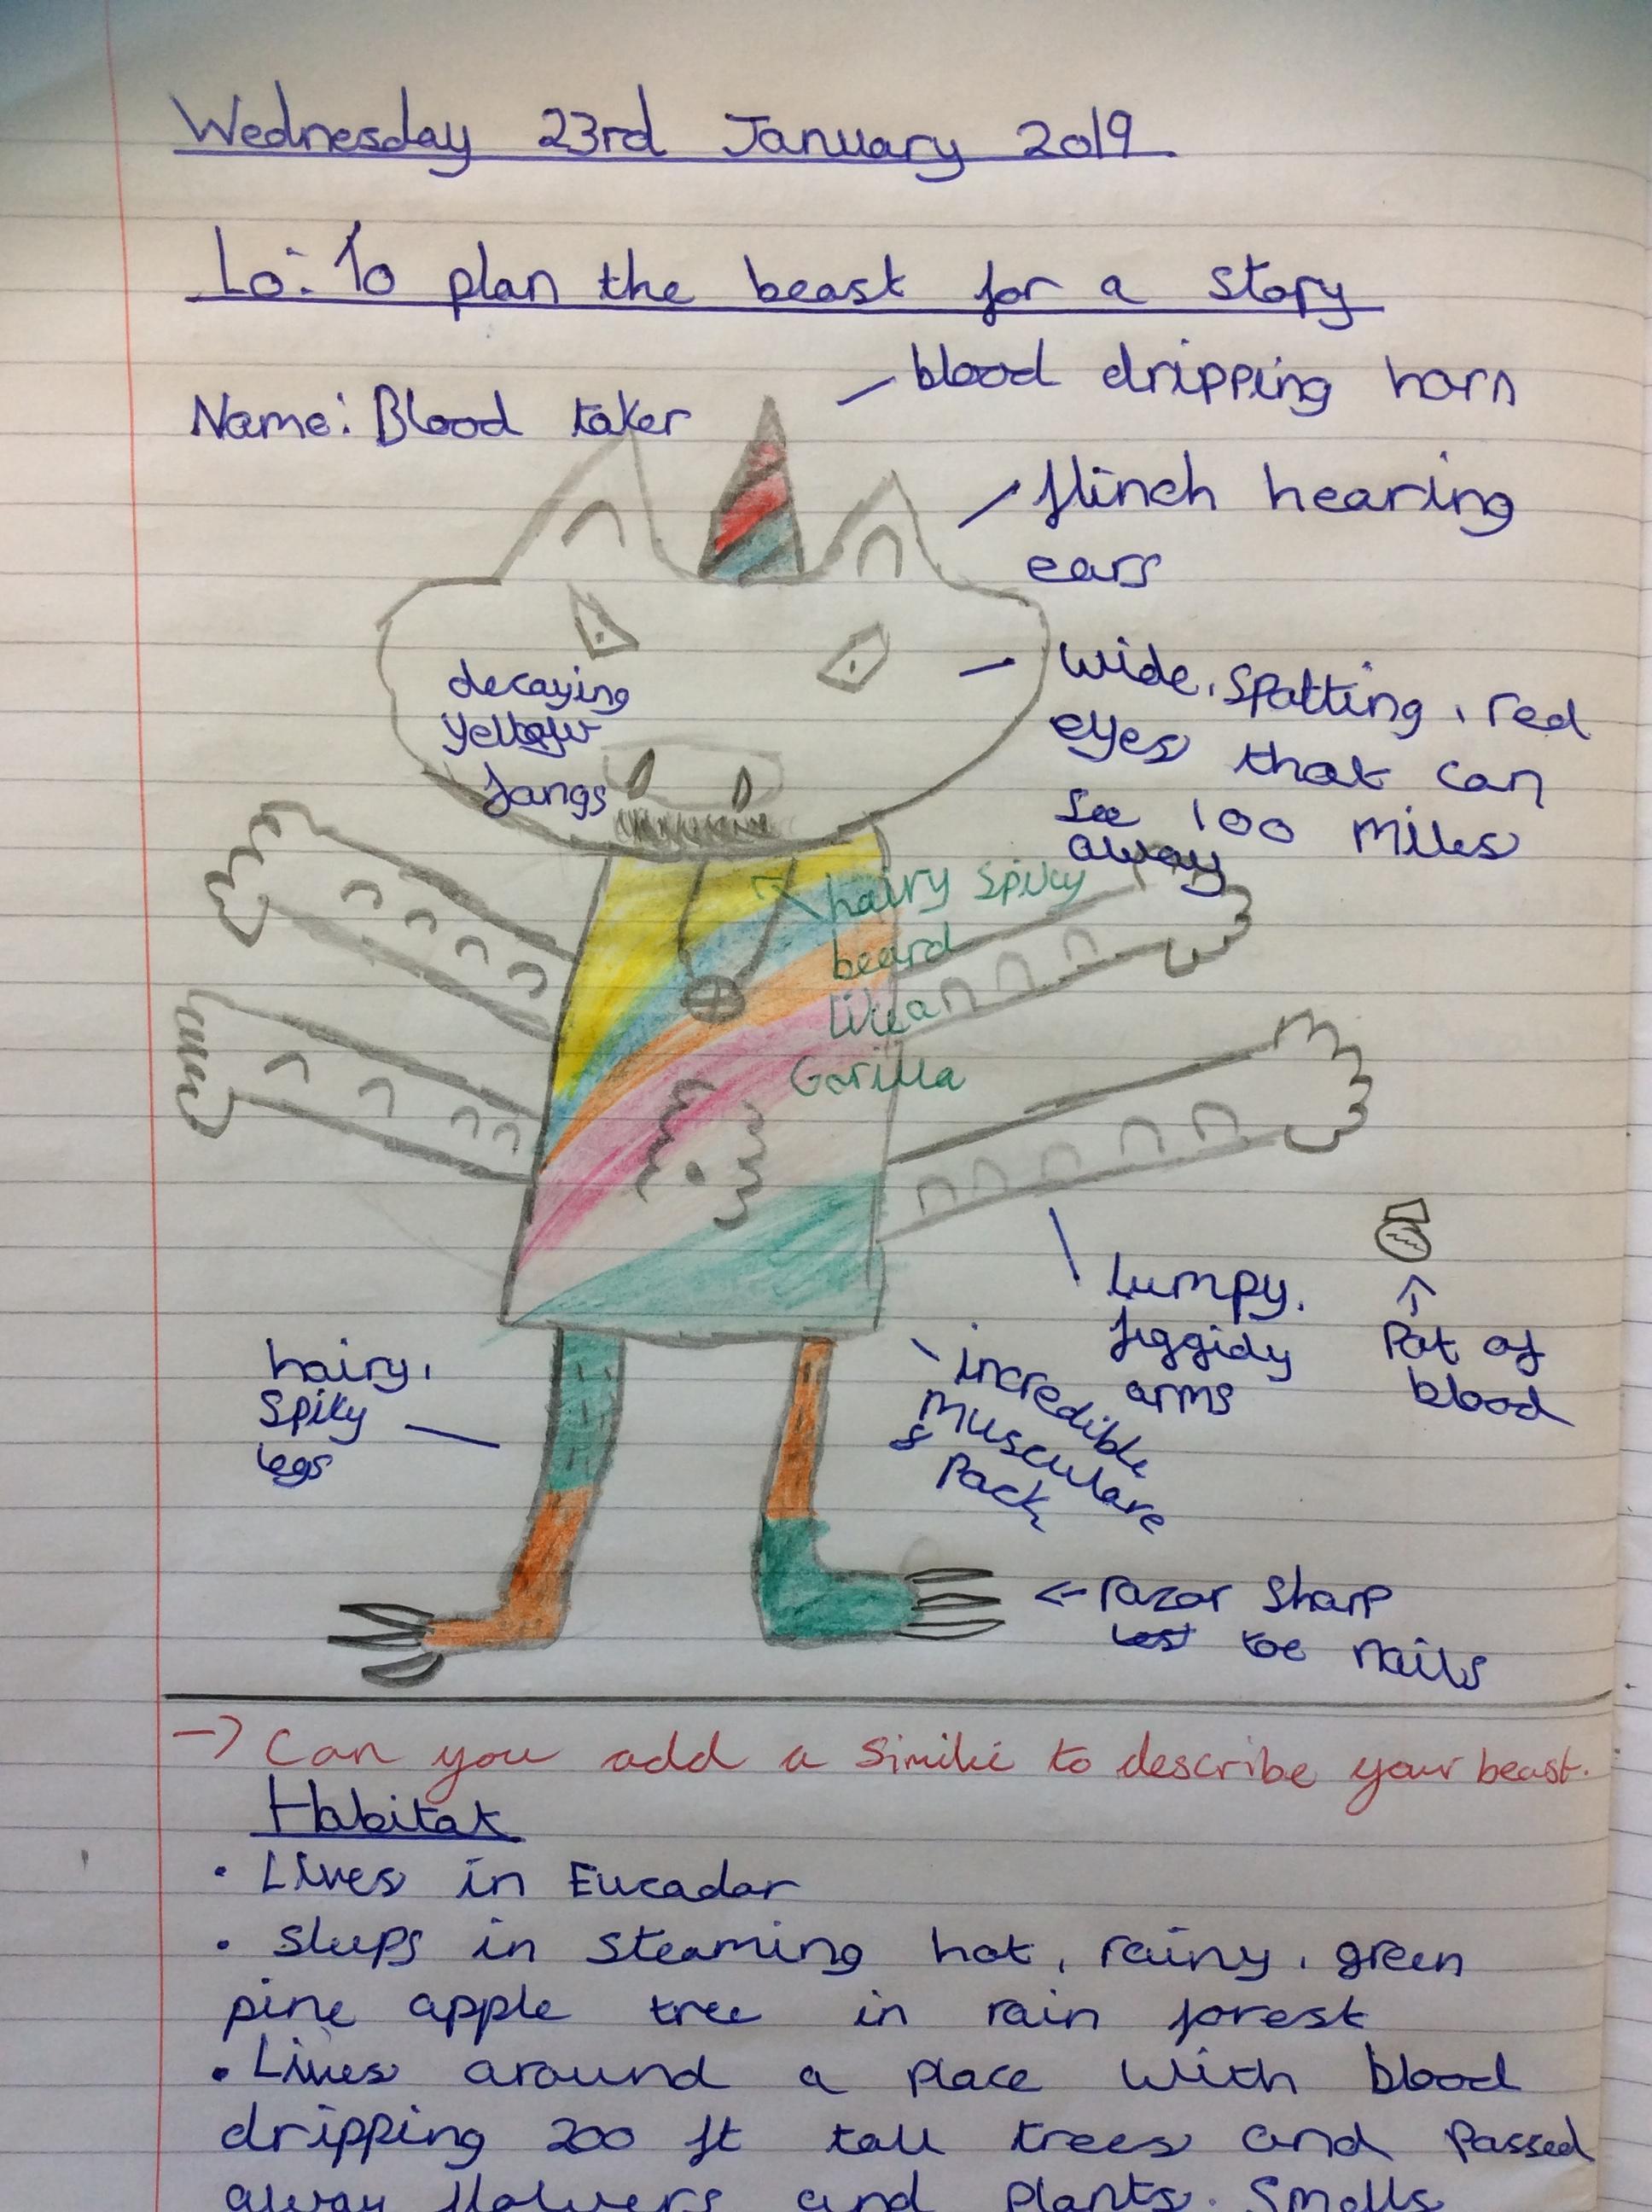 Wednesday 23rd January 2019
Lo: To plan the beast for a story
Name: Blood taker
blood dripping horn
flinch hearing
ears
wide, spotting, red
eyes that can
see 100 miles
away
decaying
yellow
fangs
hairy spiky
beard
like a
Gorilla
Lumpy,
jiggidy
arms
Pot of
blood
incredible
musculare
8 pack
hairy,
spiky
legs
← razor sharp
toe nails
→ Can you add a simile to describe your beast.
Habitat
• Lives in Eucadar
• sleeps in steaming hot, rainy, green
pine apple tree in rain forest
• Lives around a place with blood
dripping 200 ft tall trees and passed
away flowers and plants. Smells